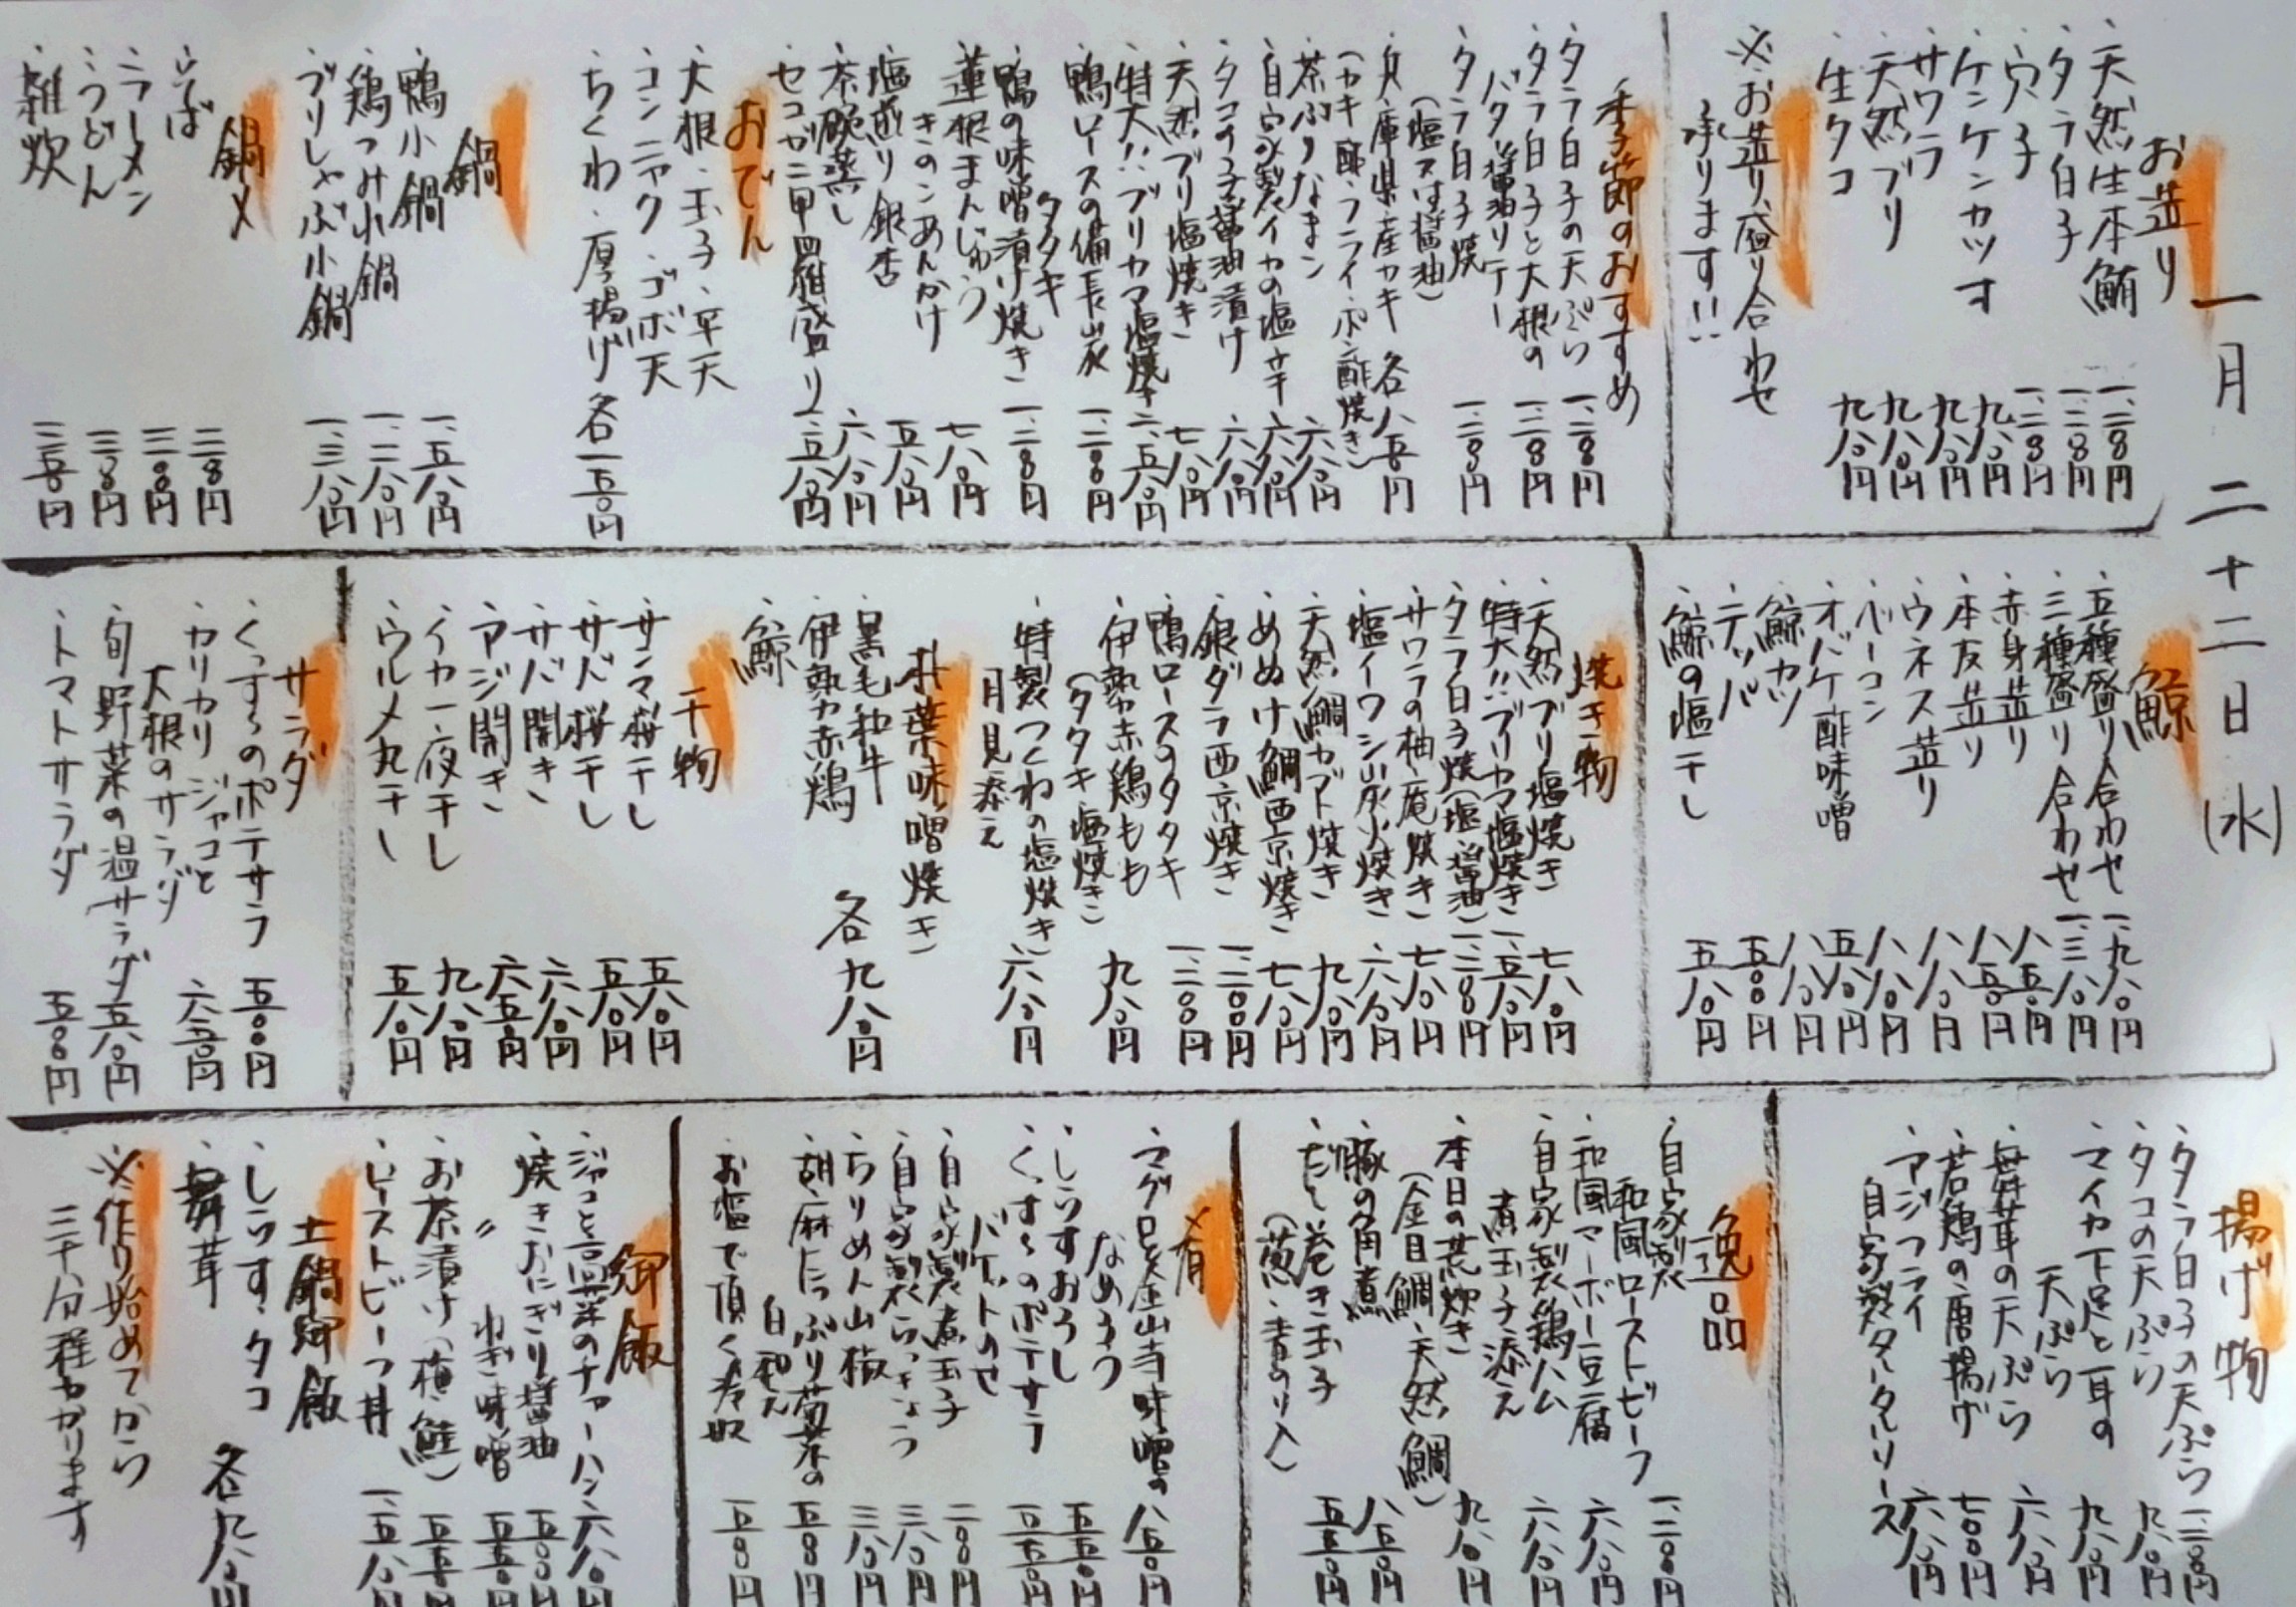 一月二十二日(水)
お造り
・天然生本鮪 一、二〇〇円
・タラ白子 一、二〇〇円
・穴子 一、二〇〇円
・ケンケンカツオ 九八〇円
・サワラ 九八〇円
・天然ブリ 九八〇円
・生タコ 九八〇円
※お造り盛り合わせ
承ります!!
季節のおすすめ
・タラ白子の天ぷら 一、二〇〇円
・タラ白子と大根の
バター醤油ソテー 一、二〇〇円
・タラ白子焼
(塩又は醤油) 一、二〇〇円
・兵庫県産カキ 各八五〇円
(カキ酢・フライ・ポン酢焼き)
・茶ぶりなまこ 六八〇円
・自家製イカの塩辛 六八〇円
・タコの子醤油漬け 六八〇円
・天然ブリ塩焼き 七八〇円
・特大!!ブリカマ塩焼き 一、五八〇円
・鴨ロースの備長炭
タタキ 一、二〇〇円
・鴨の味噌漬け焼き 一、二〇〇円
・蓮根まんじゅう
きのこあんかけ 七八〇円
・塩煎り銀杏 五八〇円
・茶碗蒸し 六八〇円
・セコガニ甲羅盛り 二、五八〇円
おでん
・大根・玉子・平天
・コンニャク・ゴボ天
・ちくわ・厚揚げ 各一五〇円
鍋
・鴨小鍋 一、五八〇円
・鶏つみ小鍋 一、二八〇円
・ブリしゃぶ小鍋 一、三八〇円
鍋〆
・そば 二〇〇円
・ラーメン 二〇〇円
・うどん 二〇〇円
・雑炊 三五〇円
鯨
・五種盛り合わせ 一、九八〇円
・三種盛り合わせ 一、三八〇円
・赤身造り 八五〇円
・本皮造り 八五〇円
・ウネス造り 八八〇円
・ベーコン 八八〇円
・オバケ酢味噌 五八〇円
・鯨カツ 八八〇円
・テッパ 五〇〇円
・鯨の塩干し 五八〇円
焼き物
・天然ブリ塩焼き 七八〇円
・特大!!ブリカマ塩焼き 一、五八〇円
・タラ白子焼(塩・醤油) 一、二〇〇円
・サワラの柚庵焼き 七八〇円
・塩イワシ炭火焼き 六八〇円
・天然鯛カブト焼き 九八〇円
・めぬけ鯛西京焼き 七八〇円
・銀ダラ西京焼き 一、二〇〇円
・鴨ロースのタタキ 一、二〇〇円
・伊勢赤鶏もも
(タタキ・塩焼き) 九八〇円
・特製つくねの塩焼き
月見添え 六八〇円
朴葉味噌焼き
・黒毛和牛
・伊勢赤鶏 各九八〇円
・鯨
干物
・サンマ桜干し 五八〇円
・サバ桜干し 五八〇円
・サバ開き 六八〇円
・アジ開き 六五〇円
・イカ一夜干し 九八〇円
・ウルメ丸干し 五八〇円
サラダ
・くっすーのポテサラ 五〇〇円
・カリカリジャコと
大根のサラダ 六五〇円
・旬野菜の温サラダ 五八〇円
・トマトサラダ 五〇〇円
揚げ物
・タラ白子の天ぷら 一、二〇〇円
・タコの天ぷら 九八〇円
・マイカ下足と耳の
天ぷら 九八〇円
・舞茸の天ぷら 六八〇円
・若鶏の唐揚げ 七〇〇円
・アジフライ
自家製タルタルソース 六八〇円
逸品
・自家製
和風ローストビーフ 一、二〇〇円
・和風マーボー豆腐 六八〇円
・自家製鶏ハム
煮玉子添え 六八〇円
・本日の荒炊き
(金目鯛・天然鯛) 九八〇円
・豚の角煮 八五〇円
・だし巻き玉子
(葱・青のり入) 五五〇円
肴
・マグロと金山寺味噌の
なめろう 八五〇円
・しらすおろし 五五〇円
・くっすーのポテサラ
バケットのせ 五五〇円
・自家製煮玉子 二〇〇円
・自家製らっきょう 三八〇円
・ちりめん山椒 三八〇円
・胡麻たっぷり菊菜の
白和え 五〇〇円
・お塩で頂く冷奴 五〇〇円
御飯
・ジャコと高菜のチャーハン 六八〇円
・焼きおにぎり醤油 五〇〇円
・〃 ねぎ味噌 五五〇円
・お茶漬け(梅・鮭) 五五〇円
・ローストビーフ丼 一、五八〇円
土鍋御飯
・しらす・タコ
・舞茸 各九八〇円
※作り始めてから
三十分程かかります